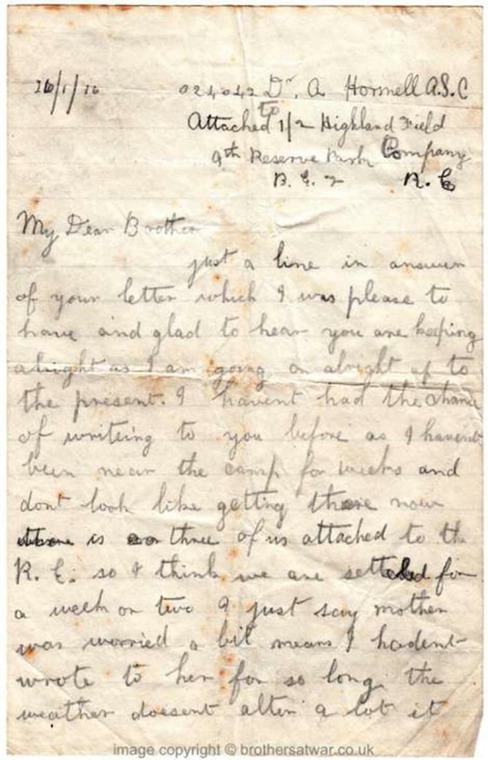 16/1/16 024042 Dr. A Hormell A.S.C
to
Attached 1/2 Highland Field
9th Reserve Park Company
R. E
My Dear Brother
just a line in answer
of your letter which I was please to
have and glad to hear you are keeping
alright as I am going on alright up to
the present. I havent had the chance
of writeing to you before as I havent
been near the camp for weeks and
dont look like getting there now
is three of us attached to the
R. E. so I think we are settled for
a week or two I just say mother
was worried a bit means I hadent
wrote to her for so long the
weather doesent alter a lot it
image copyright © brothersatwar.co.uk